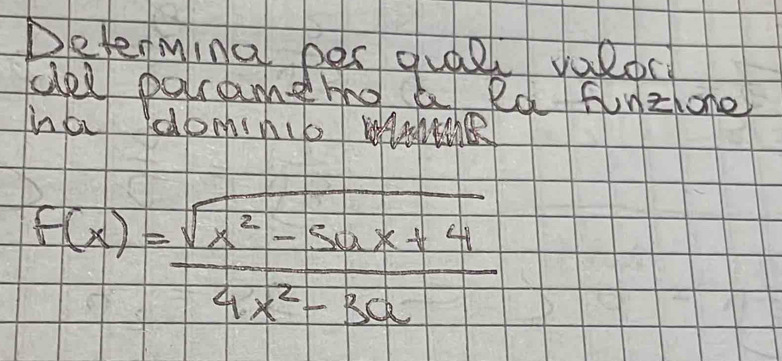 Determina per quali valori
del parametro a la funzione
ha dominio
f(x) = √x² - 5ax + 4
4x² - 3a